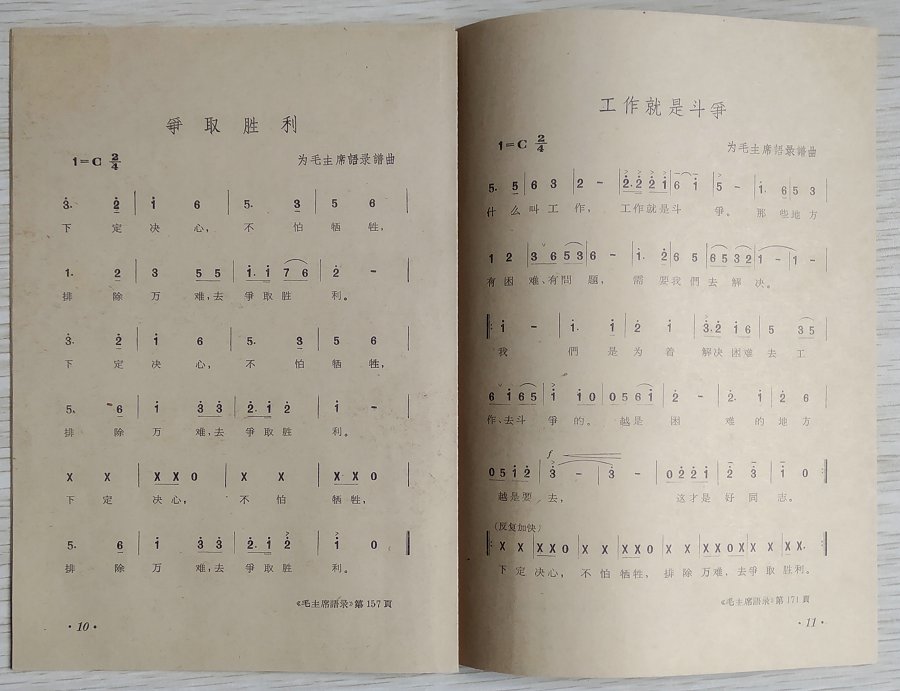 爭取胜利
1=C 2/4
为毛主席語录譜曲
3. 2 | 1 6 | 5. 3 | 5 6 |
下定决心, 不怕牺牲,
1. 2 | 3 5 5 | 1. 1 7 6 | 2 - |
排除万难,去爭取胜利。
3. 2 | 1 6 | 5. 3 | 5 6 |
下定决心, 不怕牺牲,
5. 6 | 1 3 3 | 2. 1 2 | 1 - |
排除万难,去爭取胜利。
X X | X X 0 | X X | X X |
下定决心, 不怕牺牲,
5. 6 | 1 3 3 | 2. 1 2 | 1 0 ‖
排除万难,去爭取胜利。
《毛主席語录》第157頁
·10·
工作就是斗爭
1=C 2/4
为毛主席語录譜曲
5. 5 | 6 3 | 2 - | 2. 2 2 1 | 6 1 | 5 - | 1. 6 5 3 |
什么叫工作, 工作就是斗爭。那些地方
1 2 | 3 6 5 3 | 6 - | 1. 2 | 6 5 | 6 5 3 2 | 1 - | 1 - |
有困难、有問題, 需要我們去解决。
‖: 1 - | 1. 1 | 2 1 | 3. 2 1 6 | 5 3 5 |
我們是为着解决困难去工
6 1 6 5 | 1 1 0 | 0 5 6 1 | 2 - | 2. 1 | 2 6 |
作、去斗爭的。越是困难的地方
0 5 1 2 | 3 - | 3 - | 0 2 2 1 | 2 3 | 1 0 |
f
越是要去, 这才是好同志。
(反复加快)
‖: X X | X X 0 | X X | X X X | X X | X X 0 X | X X X | X X. :‖
下定决心, 不怕牺牲, 排除万难,去爭取胜利。
《毛主席語录》第171頁
·11·